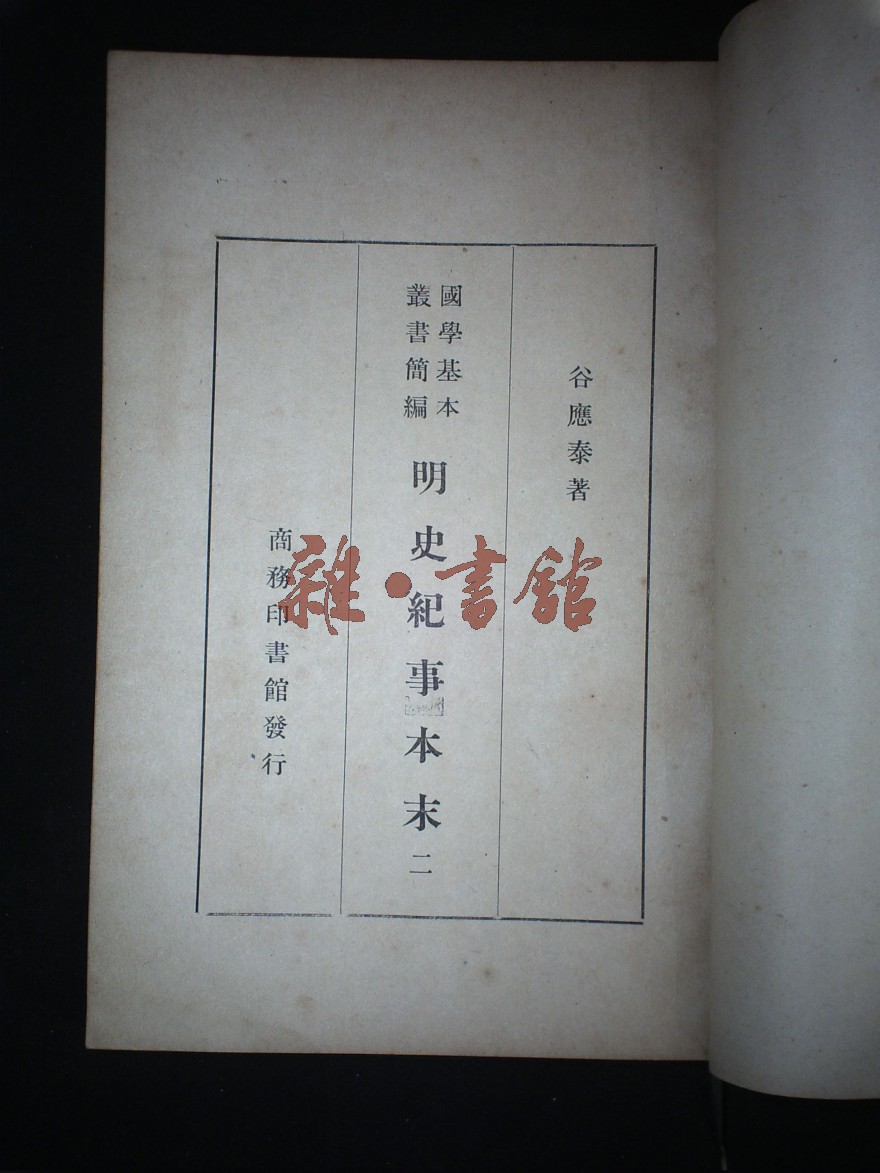 谷應泰著
國學基本
叢書簡編
明史紀事本末 二
商務印書館發行
雜·書館